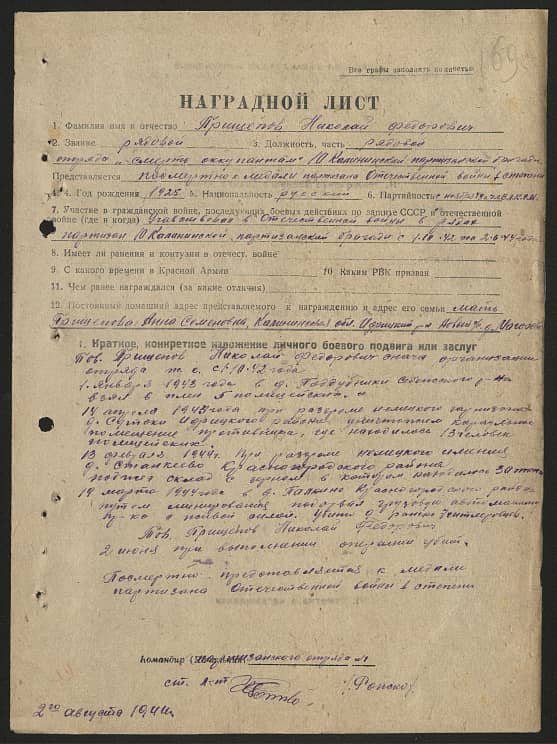 169
Все графы заполнять полностью
НАГРАДНОЙ ЛИСТ
1. Фамилия имя и отчество Прищепов Николай Федорович
2. Звание рядовой 3. Должность, часть рядовой
отряда „Смерть оккупантам" 10 Калининской партизанской бригады
Представляется посмертно к медали партизана Отечественной войны степени
4. Год рождения 1925 5. Национальность русский 6. Партийность
7. Участие в гражданской войне, последующих боевых действиях по защите СССР и отечественной
войне (где и когда) Участвовал в Отечественной войны в рядах
партизан 10 Калининской партизанской бригады с 1.10.42 по 2.6.44 года
8. Имеет ли ранения и контузии в отечест. войне
9. С какого времени в Красной Армии 10 Каким РВК призван
11. Чем ранее награждался (за какие отличия)
12. Постоянный домашний адрес представляемого к награждению и адрес его семьи мать
Прищепова Анна Семеновна, Калининская обл. Идрицкий р-н д.
I. Краткое, конкретное изложение личного боевого подвига или заслуг
Тов. Прищепов Николай Федорович с начала организации
отряда т. е. с 1.10.42 года
1. Января 1943 года в д. Поддубники р-на
взял в плен 5 полицейских.
14 апреля 1943 года при разгроме немецкого гарнизона
д. Сутоки Идрицкого района уничтожен караульное
помещение противника, где находилось 13 человек
полицейских.
13 февраля 1944 г. При разгроме немецкого имения
д. Станкеево Красногородского района
поджег склад с зерном в котором находилось 30 тонн
14 марта 1944 года в д. Красногородского района
путем минирования подорвал грузовой автомашину
с живой силой. Убито и ранено гитлеровцев.
Тов. Прищепов Николай Федорович
2 июня при выполнении операции убит.
Посмертно представляется к медали
партизана Отечественной войны степени
Командир партизанского отряда
ст. л-т
2го августа 1944 г.